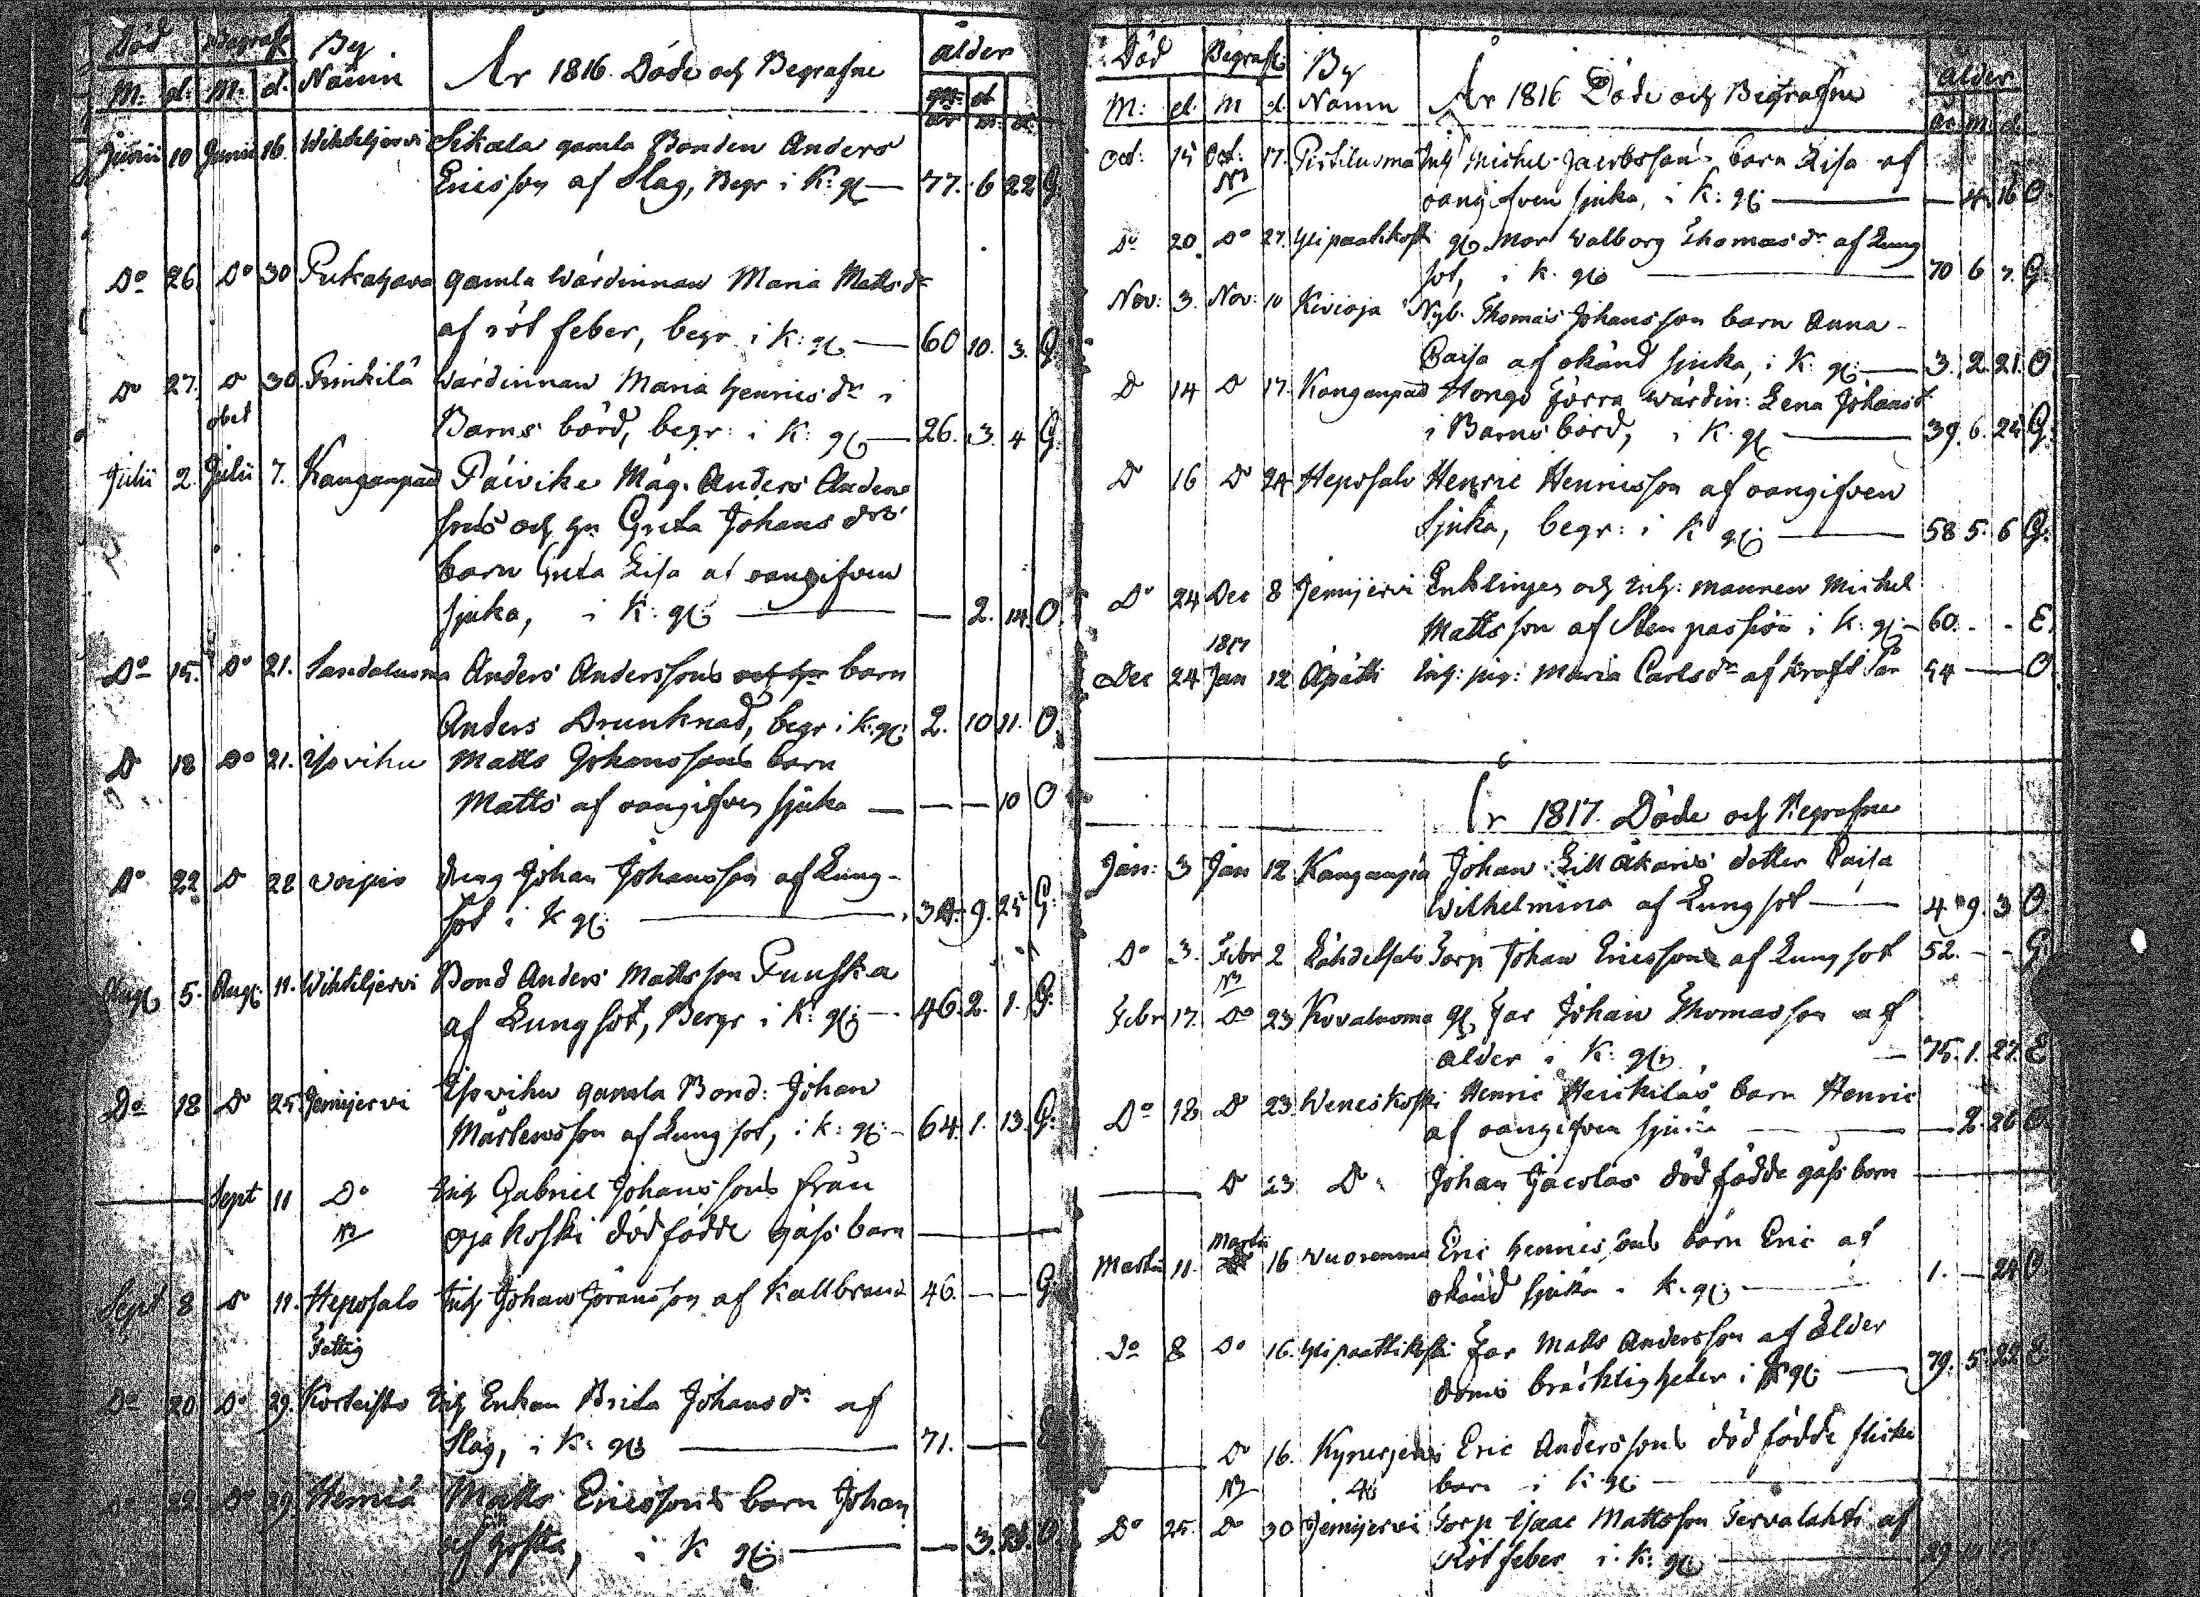 Död Begrafe By År 1816. Döde och Begrafne ålder
M: d: M: d. Namn år m. d.
Junii 10 Junii 16. Wihteljervi Sikala gamla Bonden Anders
Ericsson af Slag, Begr i K: g: — 77. 6 22 G.
Do 26. Do 30 Pukahava gamla Wärdinnan Maria Mattsdr
af röt feber, begr i K: g: — 60 10. 3. G.
Do 27. D 30. Prinkilä Wärdinnan Maria Henricsdr i
Barns börd, begr: i K: g: — 26. 3. 4 G.
Julii 2. Julii 7. Kanganpää Päivike Måg. Anders Anders
sons och hu Greta Johansdrs
barn Greta Lisa af oangifven
sjuka, i K: g: — — 2. 14. O.
Do 15. Do 21. Sandaluoma Anders Anderssons barn
Anders Drunknad, begr i K: g: 2. 10 11. O.
D 18 Do 21. Isovihu Matts Johanssons barn
Matts af oangifven sjuka — — — 10 O
Do 22 D 28 Woipio dreng Johan Johansson af Lung-
sot i K g: — 9. 25 G.
Aug 5. Aug: 11. Wihteljervi Bond Anders Mattsson Punska
af Lungsot, Begr i K: g: — 46. 2. 1. G.
Do 18 Do 25 Jämijervi Isovihu gamla Bond: Johan
Mårtensson af Lungsot, i K: g: — 64. 1. 13. G.
— Sept 11 Do Inh Gabriel Johanssons från
NB Ojakoski dödfödde gåssbarn —
Sept 8 D 11. Heposalo Inh Johan Göransson af Kallbrand 46. — — G
Fattig
Do 20 Do 29. Korteisto Inh Enkan Brita Johansdr af
Slag, i K: g: — 71. — E
Do 22. Do 29. Hemiä Matts Ericssons barn Johan
af hosta, i K g: — — 3. 28. O.
Död Begrafe By År 1816 Döde och Begrafne ålder
M: d. M d Namn år. m. d.
Oct: 15 Oct: 17. Pertiluoma Inh Michel Jacobssons barn Lisa af
NB oangifven sjuka, i K: g: — — 4. 16 O.
Do 20. Do 27. Ylipaatikoski g: Mor Walborg Thomasdr af Lung
sot, i K. g: — 70 6 7. G.
Nov: 3. Nov: 10 Kivioja Nyb. Thomas Johansson barn Anna-
Caisa af okänd sjuka, i K. g: — 3. 2. 21. O
D 14 D 17. Kanganpää Hongo Förra Wärdin: Lena Johansd
i Barnsbörd, i K. g: — 39. 6. 25 G.
D 16 D 24 Heposalo Henric Henricsson af oangifven
sjuka, begr: i K g: — 58 5. 6 G:
Do 24 Dec 8 Jämijervi Enklingen och Inh: mannen Michel
Mattsson af Stenpassion i K: g: — 60. - - E.
1817
Dec 24 Jan 12 Äpätti Inh: pig: Maria Carlsdr af Kräftsår 54 — O
År 1817. Döde och Begrafne
Jan: 3 Jan 12. Kanganpää Johan Lill åkaris dotter Caisa
Wilhelmina af Lungsot — 4 9. 3 O.
Do 3. Febr 2 Lähdelsalo Torp Johan Ericsson af Lungsot 52. - - G.
NB
Febr 17. Do 23. Kovaluoma g: Far Johan Thomasson af
ålder i K: g: — 75. 1. 27. E
Do 18. D 23 Weneskoski Henric Heikiläs barn Henric
af oangifven sjuka — — 2. 26 O.
— D 23 D Johan Jacolas dödfödde gåssbarn —
Martii 11. Martii 16 Wuorenmaa Eric Henricssons barn Eric af
okänd sjuka i K. g: — 1. — 24 O.
Do 8 Do 16. Ylipaattikoski Far Matts Andersson af Ålder
doms bräckligheter i K g: — 79. 5. 22 E
— D 16. Kynerjervi Eric Anderssons dödfödde flicke
NB barn i K g: —
Do 25. D 30 Jämijervi Torp Isaac Mattsson Tervalahti af
Rötfeber i K: g: — 29